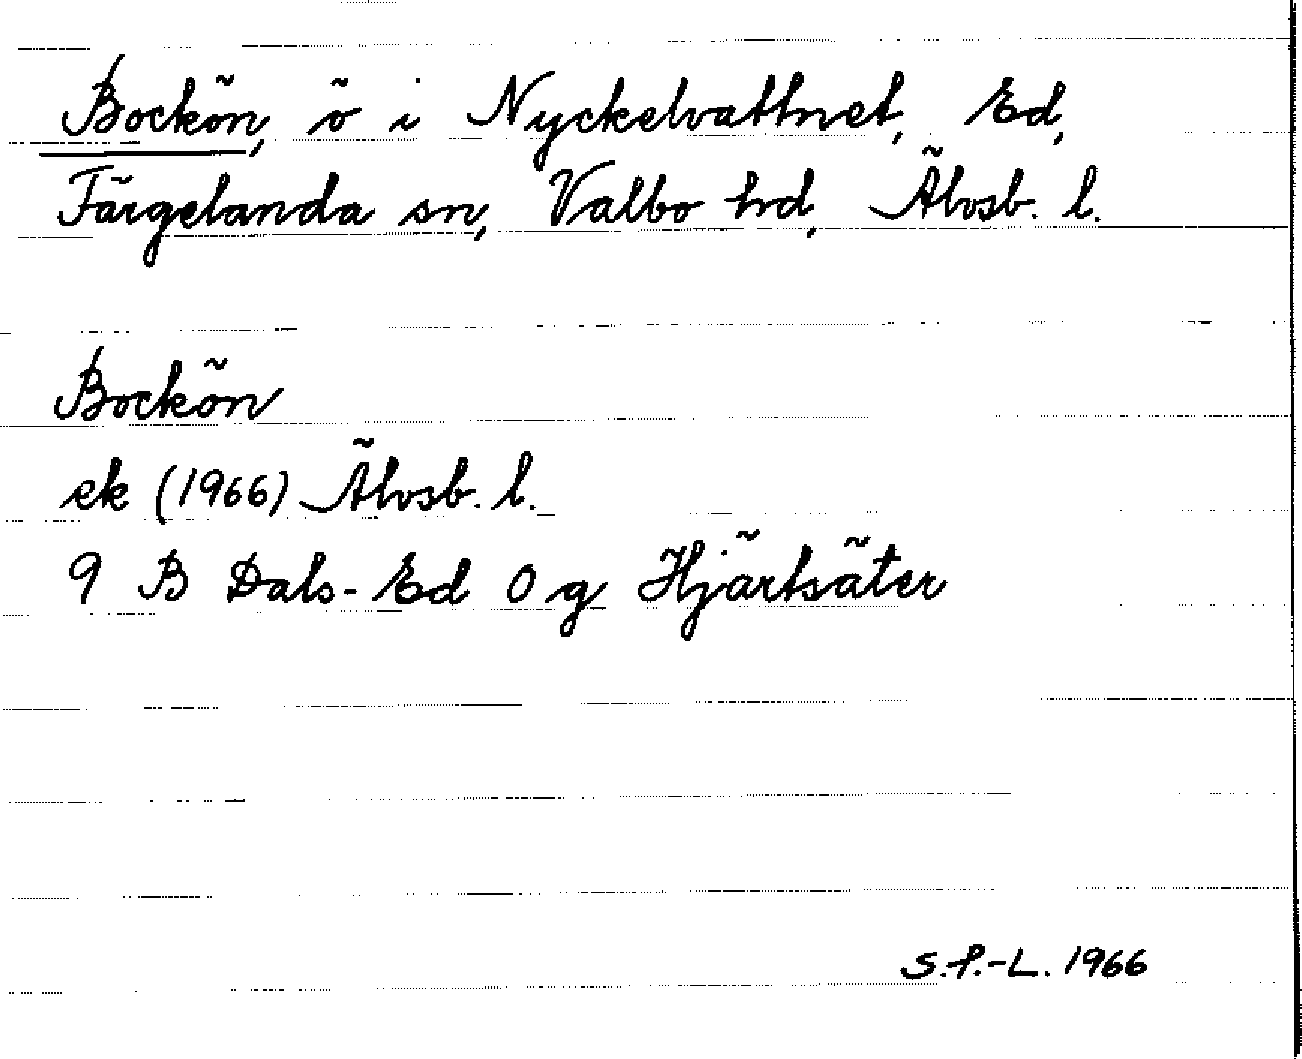 Bockön, ö i Nyckelvattnet, Ed,
Färgelanda sn, Valbo hd, Älvsb. l.
Bockön
ek (1966) Älvsb. l.
9 B Dals-Ed 0 g Hjärtsäter
S.F.-L. 1966